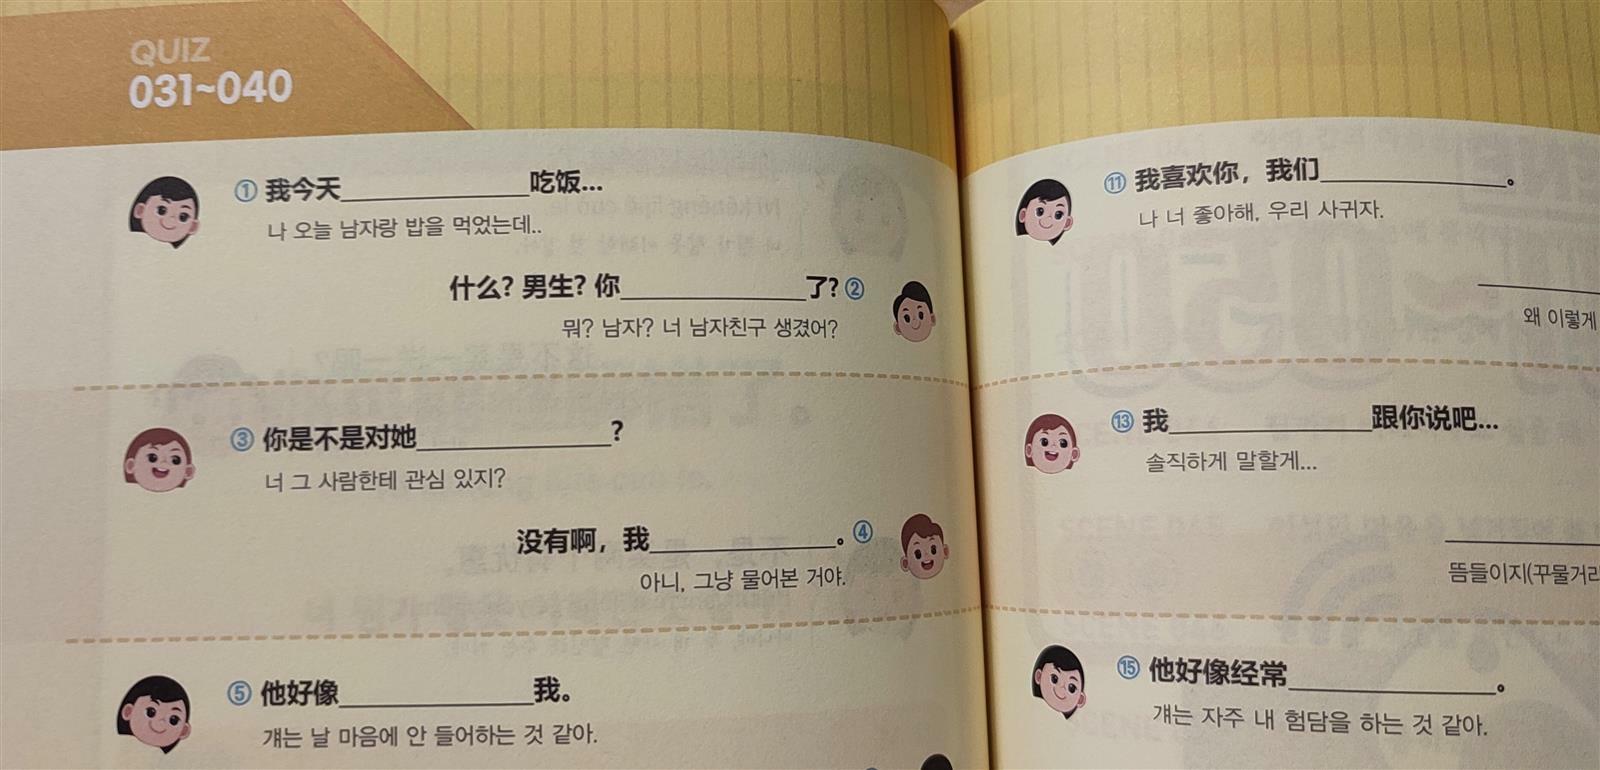 QUIZ
031~040
① 我今天____________吃饭...
나 오늘 남자랑 밥을 먹었는데..
什么? 男生? 你____________了? ②
뭐? 남자? 너 남자친구 생겼어?
③ 你是不是对她____________?
너 그 사람한테 관심 있지?
没有啊，我____________。④
아니, 그냥 물어본 거야.
⑤ 他好像____________我。
걔는 날 마음에 안 들어하는 것 같아.
⑪ 我喜欢你，我们____________。
나 너 좋아해, 우리 사귀자.
왜 이렇게
⑬ 我____________跟你说吧...
솔직하게 말할게...
뜸들이지(꾸물거리
⑮ 他好像经常____________。
걔는 자주 내 험담을 하는 것 같아.